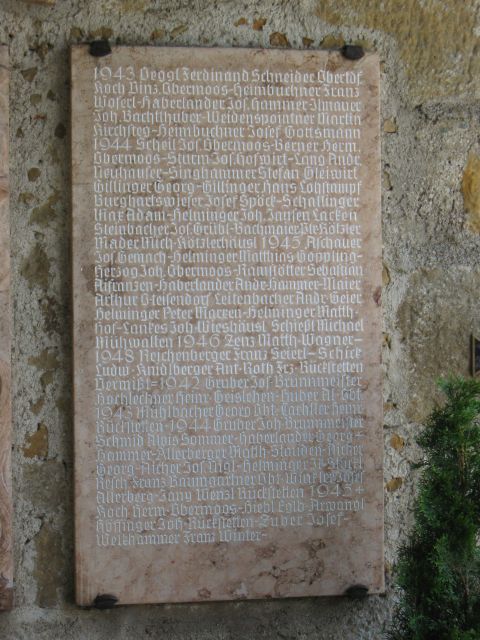 1943 Deggl Ferdinand Schneider Obertdf
Koch Vinz Obermoos-Heimbuchner Franz
Waferl-Haberlander Jos. Hammer Ihnauer
Joh Bachlhuber-Weidenspointner Martin
Kirchsteg-Heimbuchner Josef Gottsmann
1944 Schell Jos Obermoos-Berner Herm
Obermoos-Sturm Jos Hofwirt-Lang Andr
Neuhauser-Singhammer Stefan Oleiwirt
Gillinger Georg-Gillinger Hans Lohstampf
Burghartswieser Josef Spöck-Schallinger
Max Adam-Helminger Joh. Jansen Lacken
Steinbacher Jos. Grubl-Bachmaier Ple Kötzler
Mader Mich-Kötzlerhäusl 1945 Aschauer
Jos Gemach-Helminger Matthias Göppling-
Herzog Joh. Obermoos-Ramstötter Sebastian
Haberlander Andr Hammer-Maier
Arthur Geisendorf Leitenbacher Andr Geier
Helminger Peter Marxen-Helminger Matth
Hof-Lankes Joh Wieshäusl Schießl Michael
Mühwalten 1946 Zenz Matth Wagner-
1948 Reichenberger Franz Seierl-Schick
Ludw Knidlberger Ant-Roth Frz Rückstetten
Vermißt-1942 Gruber Jos Brunnmeister
Hochlechner Heinr Geislehen-Huber Al Gbt
1943 Mühlbacher Georg Obt-Heinr
Rückstetten 1944 Gruber Joh Brunnmeister
Schmid Alois Sommer-Haberlander Georg
Hammer-Allerberger Matth Stauden-Aicher
Georg-Aicher Jos Nigl-Helminger
Resch Franz Baumgartner Obt-Winkler Josef
Allerberg-Jany Wenzl Rückstetten 1945
Koch Herm-Obermoos-Hiebl Egid-
Höflinger Joh-Rückstetten-Huber Josef-
Weikhammer Franz Winter-